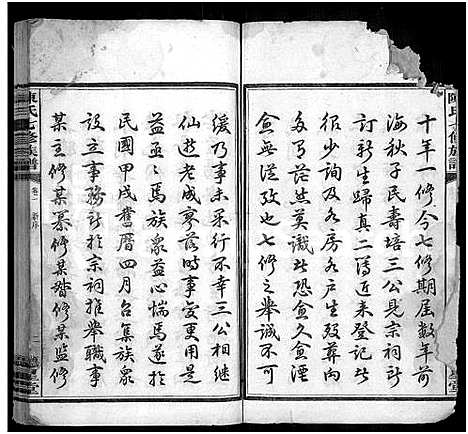 十年一修今七修期屆數年前
海秋子民壽培三公見宗祠訂
訂新生歸真二簿近未登記些
很少詢及各房各戶生殁葬向
多有茫然莫識些恐愈久愈湮
僉㒰有七修之舉誠
緩乃事未采行不幸三公相繼
仙遊老成寥落時事變更用是
益亟亟焉族眾益心惴焉遂於
民國甲戌舊曆四月召集族眾
之事務計於宗祠推舉職事
某主修某纂修某督修某監修
陳氏七修族譜
卷一
新序
二